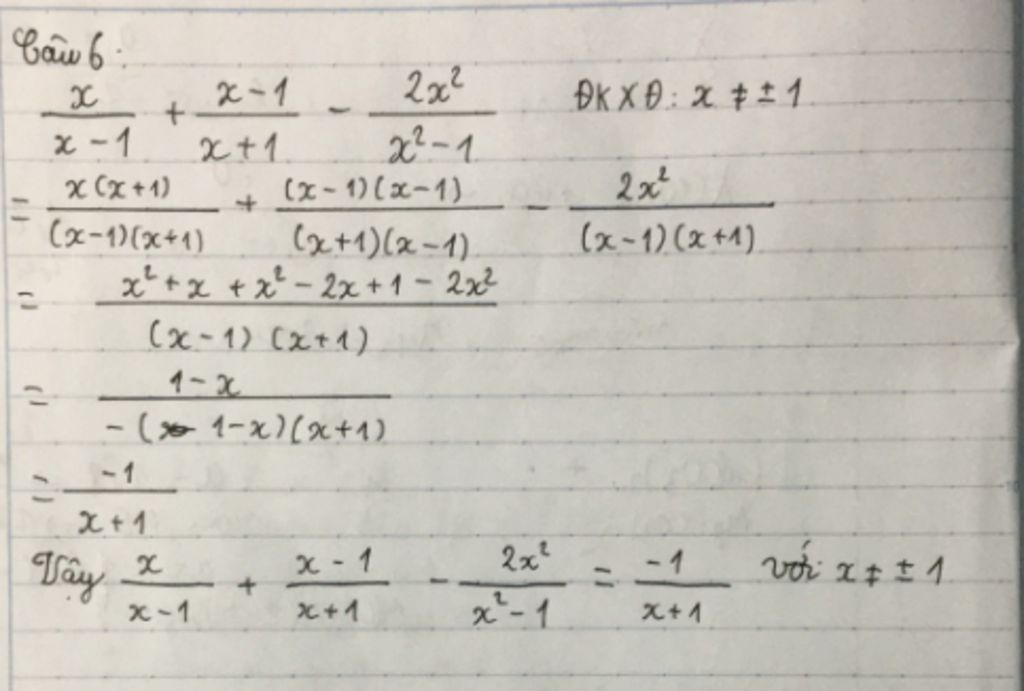 Câu 6:
x/(x - 1) + (x - 1)/(x + 1) - 2x²/(x² - 1) ĐKXĐ: x ≠ ± 1
= x(x+1)/((x-1)(x+1)) + (x-1)(x-1)/((x+1)(x-1)) - 2x²/((x-1)(x+1))
= (x² + x + x² - 2x + 1 - 2x²)/((x-1)(x+1))
= (1 - x)/(-(1-x)(x+1))
= -1/(x + 1)
Vậy x/(x - 1) + (x - 1)/(x + 1) - 2x²/(x² - 1) = -1/(x + 1) với x ≠ ± 1